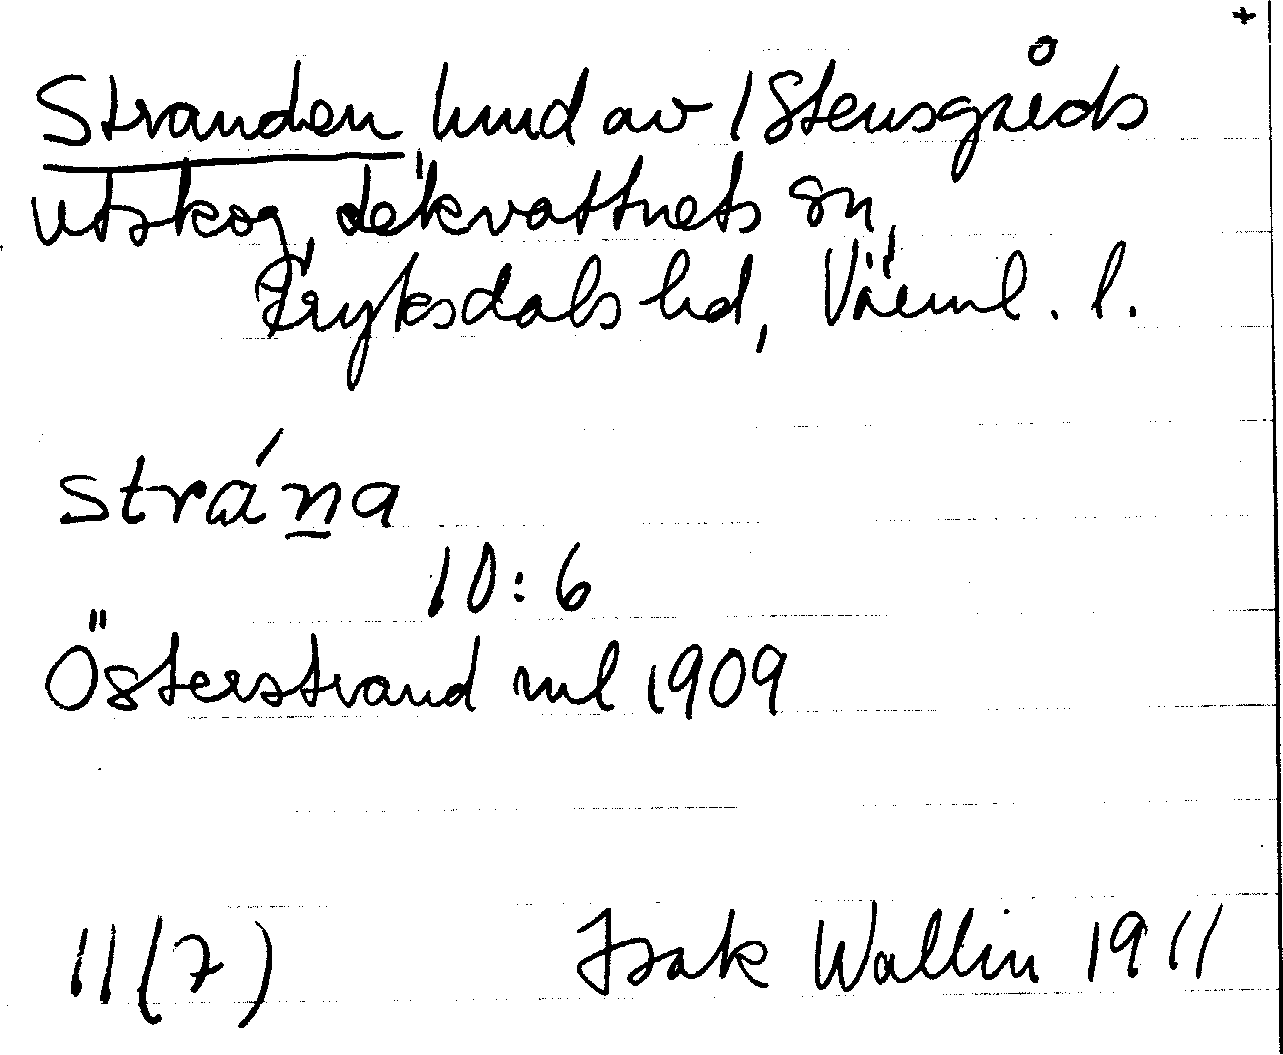 +
Stranden hmd av 1 Stensgårds
utskog, Lekvattnets sn,
Fryksdals hd, Värml. l.
strána
10:6
Österstrand ml 1909
11(7) Isak Wallin 1911